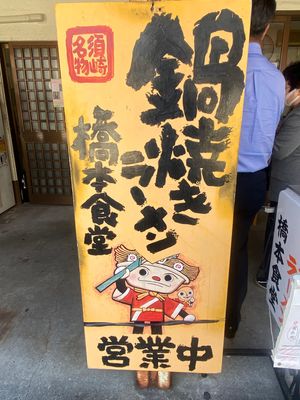 須崎名物
鍋焼き
ラーメン
橋本食堂
営業中
橋本食堂